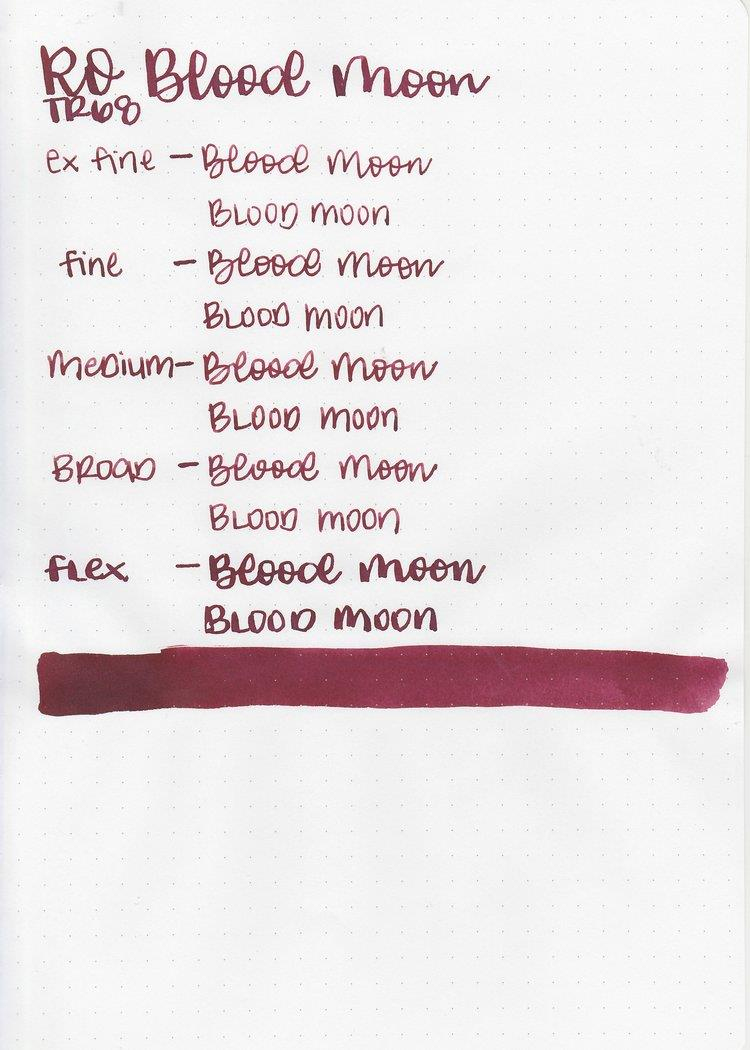 RO Blood Moon
TR68
ex fine - Blood Moon
BLOOD MOON
fine - Blood Moon
BLOOD MOON
Medium - Blood Moon
BLOOD MOON
BROAD - Blood Moon
BLOOD MOON
flex - Blood Moon
BLOOD MOON